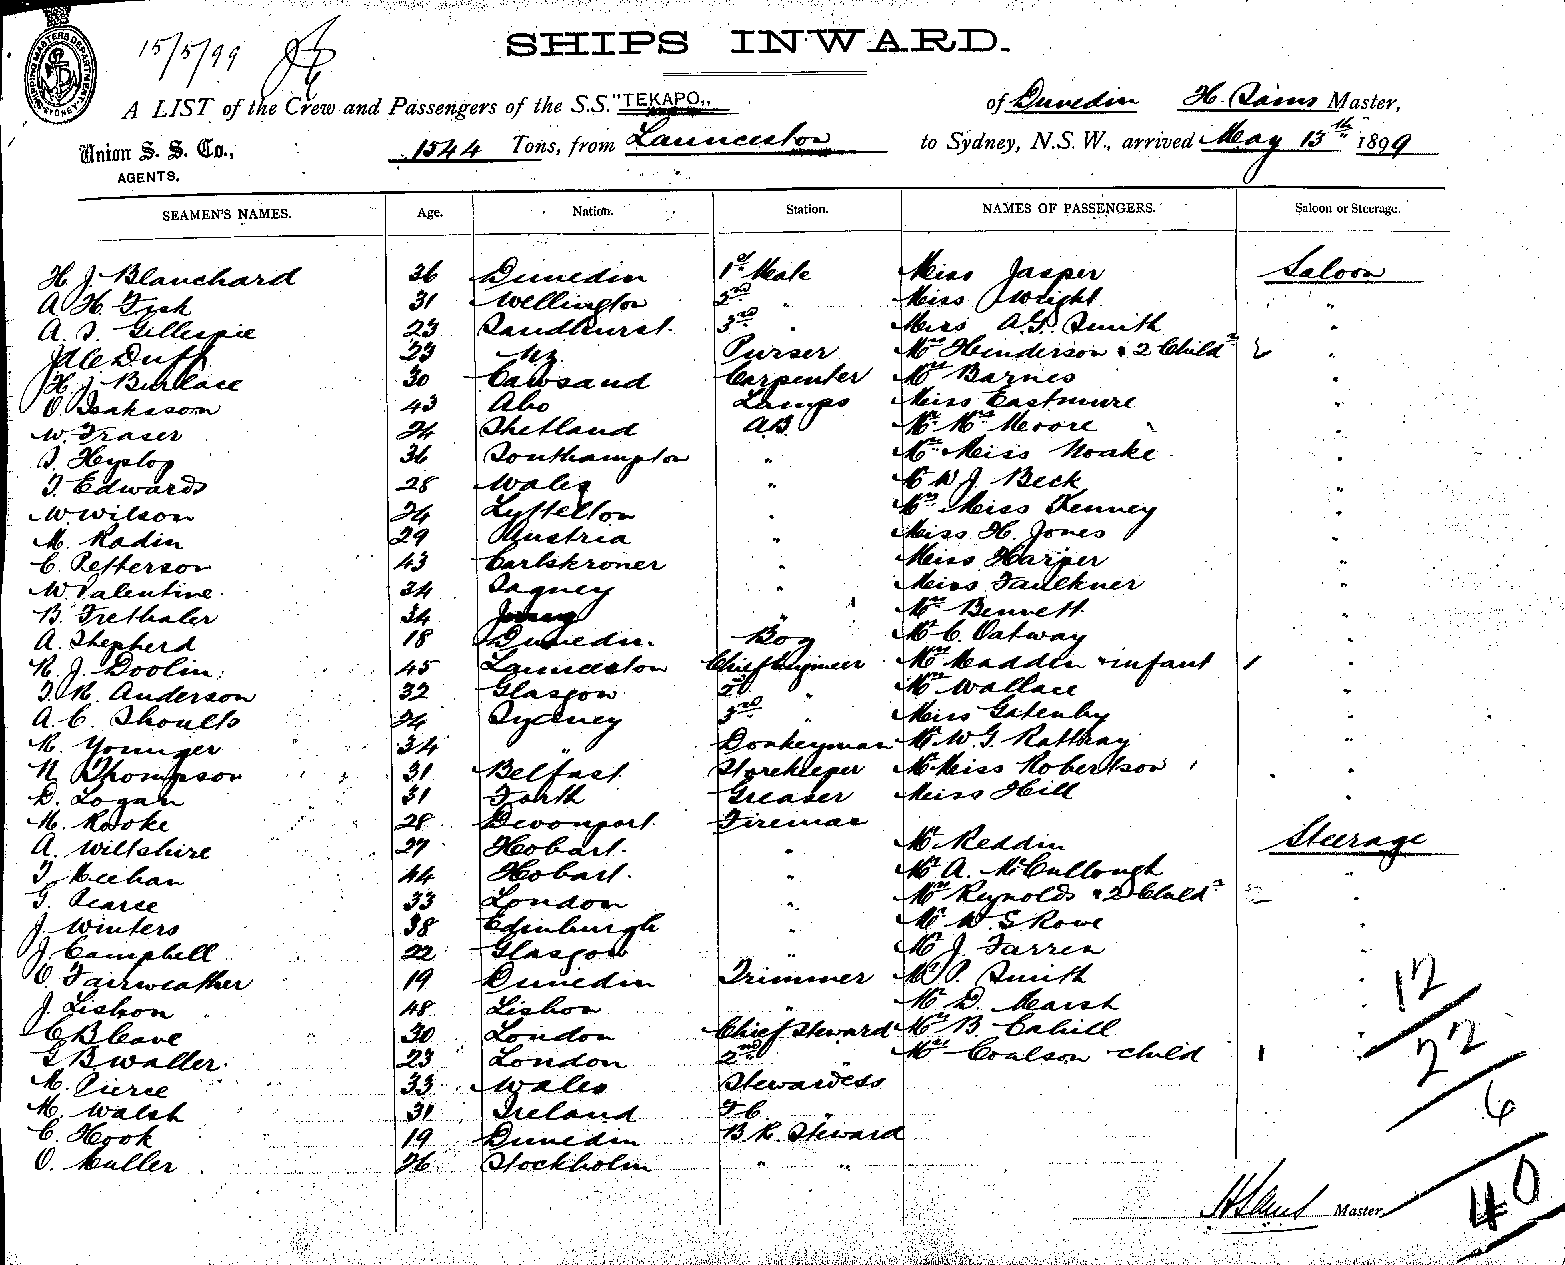 15/5/99
SHIPS INWARD.
A LIST of the Crew and Passengers of the S.S. "TEKAPO" of Dunedin H. Sams Master,
Union S. S. Co., AGENTS. 1544 Tons, from Launceston to Sydney, N.S.W., arrived May 13th 1899
SEAMEN'S NAMES. Age. Nation. Station. NAMES OF PASSENGERS. Saloon or Steerage.
H J Blanchard 36 Dunedin 1st Mate Miss Jasper Saloon
A H Fish 31 Wellington 2nd " Miss Wright "
A. J. Gillespie 23 Sandhurst 3rd " Miss A.G. Smith "
Duff 23 NZ Purser Mrs Henderson & 2 Childn 2 "
H J Burlace 30 Cawsand Carpenter Mrs Barnes "
O Isaksson 43 Abo Lamps Miss Eastmure "
W. Fraser 24 Shetland AB Mr Mrs Moore "
J Heyslop 36 Southampton " Mrs Miss Noake "
J. Edwards 28 Wales " Mr W J Beck "
W Wilson 24 Lyttelton " Mrs Miss Tenney "
M. Radin 29 Austria " Miss H. Jones "
C. Petterson 43 Carlskroner " Miss Harper "
W Valentine 34 " Miss Faulkner "
B. Trethaler 34 " Mrs Bennett "
A. Shepherd 18 Dunedin Boy Mr C. Oatway "
R. J. Doolin 45 Launceston Chief Engineer Mrs Maddin & infant 1 "
J. R. Anderson 32 Glasgow 2nd " Mrs Wallace "
A. C. Shoults 24 Sydney 3rd " Miss Gatenby "
R. Younger 34 " Donkeyman Mr W. G. Rattray "
N Thompson 31 Belfast Storekeeper Mr Miss Robertson "
D. Logan 31 Forth Greaser Miss Hill "
M. Rooke 28 Devonport Fireman
A. Wiltshire 27 Hobart " Mr Reddin Steerage
J Meehan 44 Hobart " Mr A. McCullough "
G. Pearse 33 London " Mrs Reynolds & 2 Childn 2 "
J Winters 38 Edinburgh " Mr W. S Rowe "
J Campbell 22 Glasgow " Mr J. Farren "
O Fairweather 19 Dunedin Trimmer Mr P. Smith "
J. Lisbon 48 Lisbon " Mr D. Marsh "
C B Cave 30 London Chief Steward Mr B. Cahill "
G B Waller 23 London 2nd " Mrs Coalson child 1 "
M. Pierce 33 Wales Stewardess
M. Walsh 31 Ireland F.C. "
C. Hook 19 Dunedin B R Steward
O. Muller 26 Stockholm " "
12
22
6
40
H Sams Master